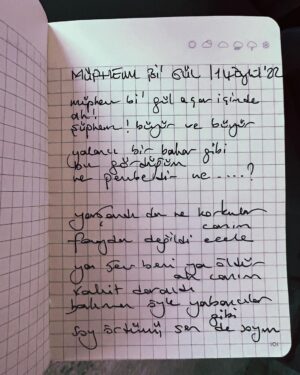 MÜPHEM Bİ' GÜL | 14 Eylül '22
müphem bi' gül açar içinde
ah!
şüphem! büyür ve büyür
yalancı bir bahar gibi
bu gördüğüm
ne pembedir ne ....?
yaşandı da ne korkular
canım
faydası değildi ecele
ya sev beni ya öldür
ah canım
vakit daraldı
bakma öyle yabancılar
gibi
soy örtümü sen de soyun
101